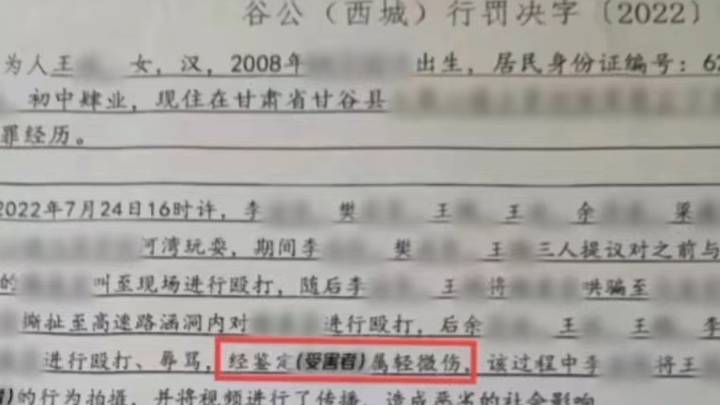 谷公（西城）行罚决字〔2022〕
为人王 女，汉，2008年 出生，居民身份证编号：62
初中肄业，现住在甘肃省甘谷县
罪经历。
2022年7月24日16时许，李 樊 王 王 余 梁
河湾玩耍，期间李 樊 王 三人提议对之前与
的 叫至现场进行殴打，随后李 王 将 哄骗至
撕扯至高速路涵洞内对 进行殴打，后余 王 王
进行殴打、辱骂，经鉴定(受害者)属轻微伤，该过程中李 将王
的行为拍摄，并将视频进行了传播，造成恶劣的社会影响